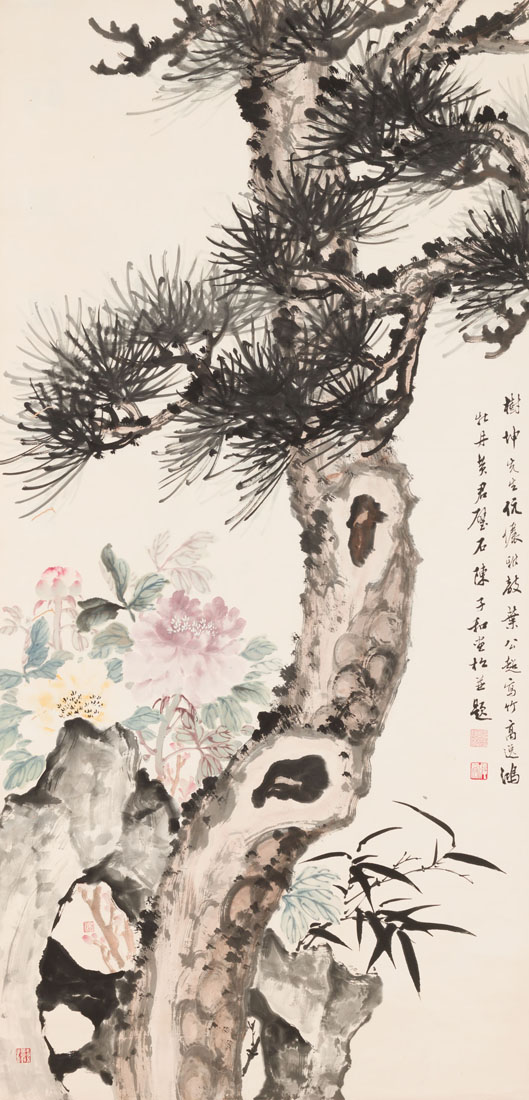 樹坤先生伉儷班教葉公超寫竹高逸鴻
牡丹黃君璧石陳子和畫松並題